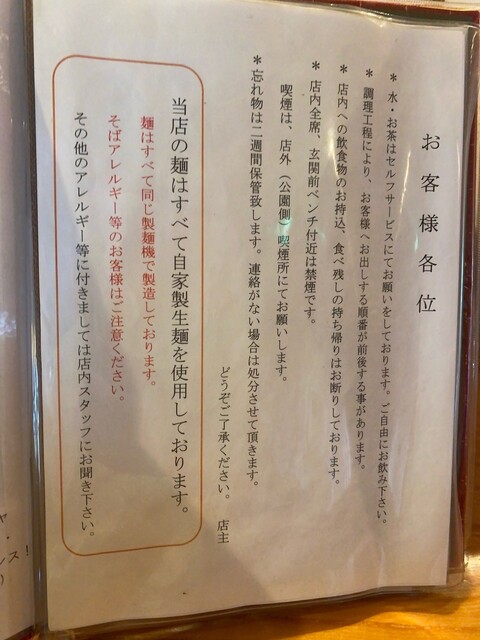 お客様各位
＊水・お茶はセルフサービスにてお願いをしております。ご自由にお飲み下さい。
＊調理工程により、お客様へお出しする順番が前後する事があります。
＊店内への飲食物のお持込、食べ残しの持ち帰りはお断りしております。
＊店内全席、玄関前ベンチ付近は禁煙です。
喫煙は、店外（公園側）喫煙所にてお願いします。
＊忘れ物は二週間保管致します。連絡がない場合は処分させて頂きます。
どうぞご了承ください。 店主
当店の麺はすべて自家製生麺を使用しております。
麺はすべて同じ製麺機で製造しております。
そばアレルギー等のお客様はご注意ください。
その他のアレルギー等に付きましては店内スタッフにお聞き下さい。